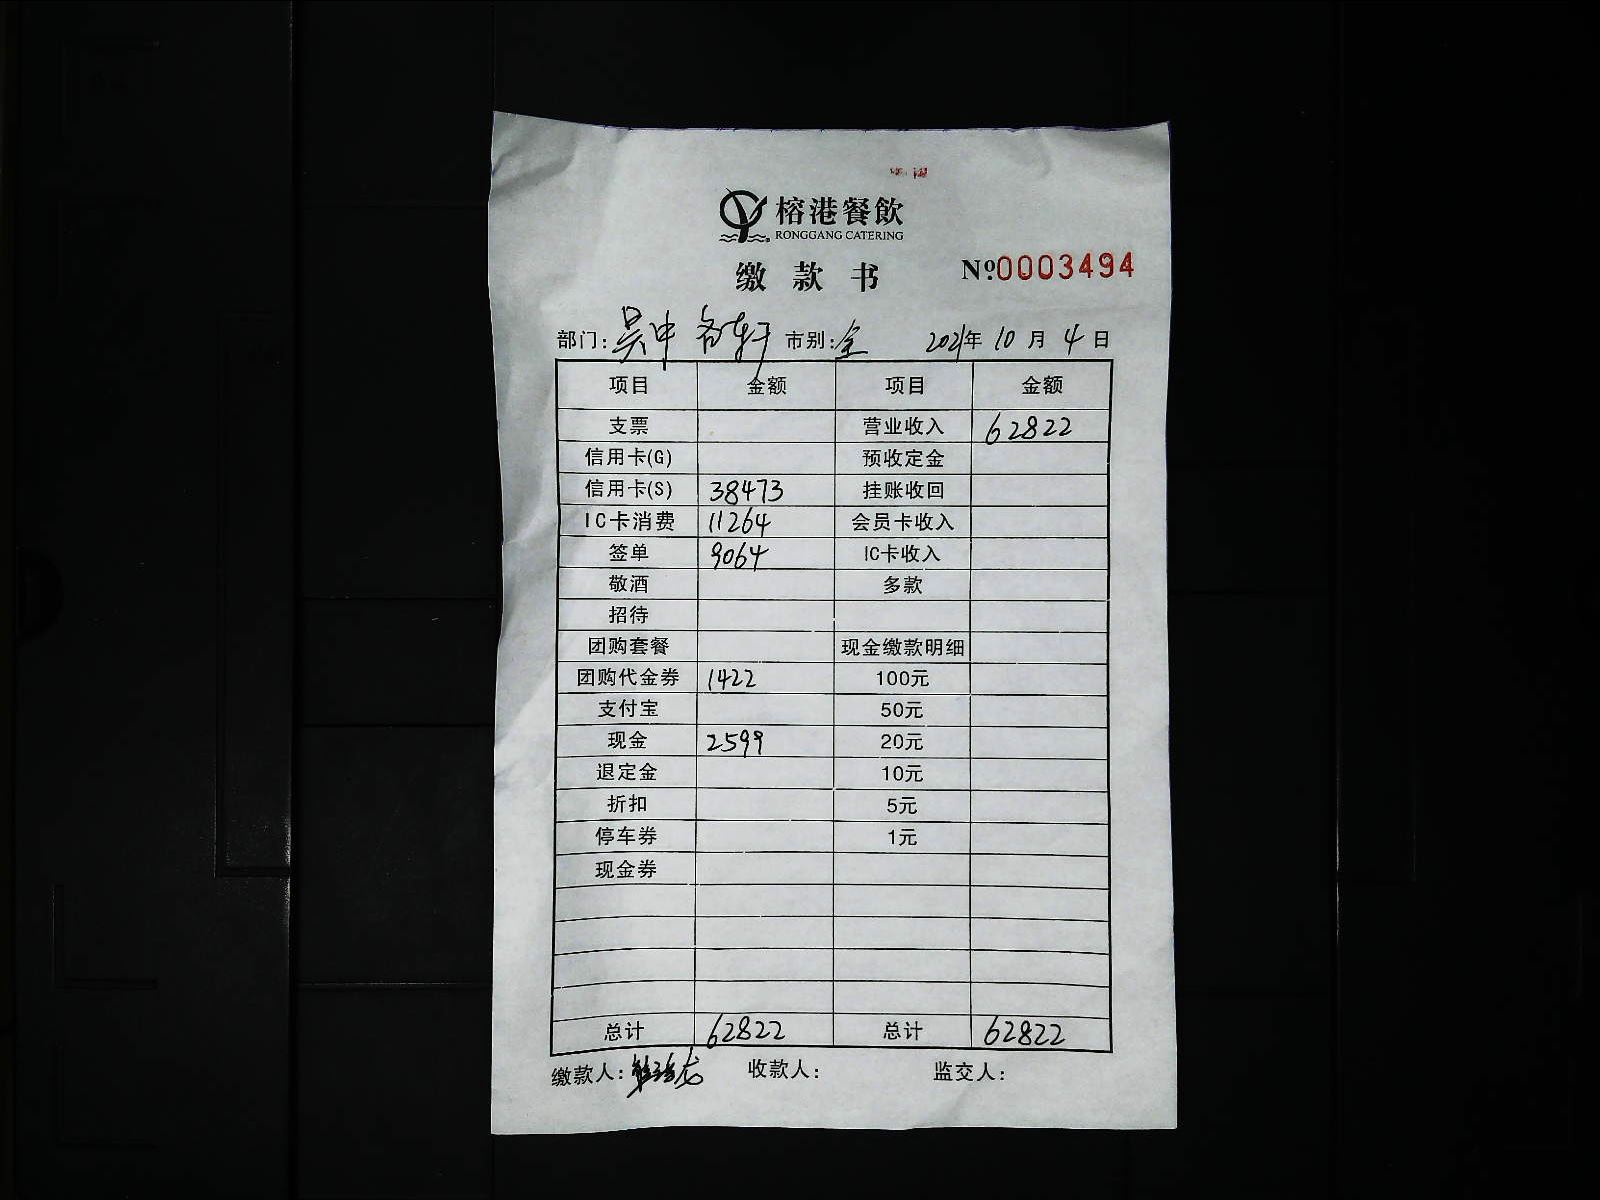 榕港餐飲
RONGGANG CATERING
缴款书 №0003494
部门:吴中 市别:全 2021年10月4日
项目 金额 项目 金额
支票 营业收入 62822
信用卡(G) 预收定金
信用卡(S) 38473 挂账收回
IC卡消费 11264 会员卡收入
签单 9064 IC卡收入
敬酒 多款
招待
团购套餐 现金缴款明细
团购代金券 1422 100元
支付宝 50元
现金 2599 20元
退定金 10元
折扣 5元
停车券 1元
现金券
总计 62822 总计 62822
缴款人: 收款人: 监交人: